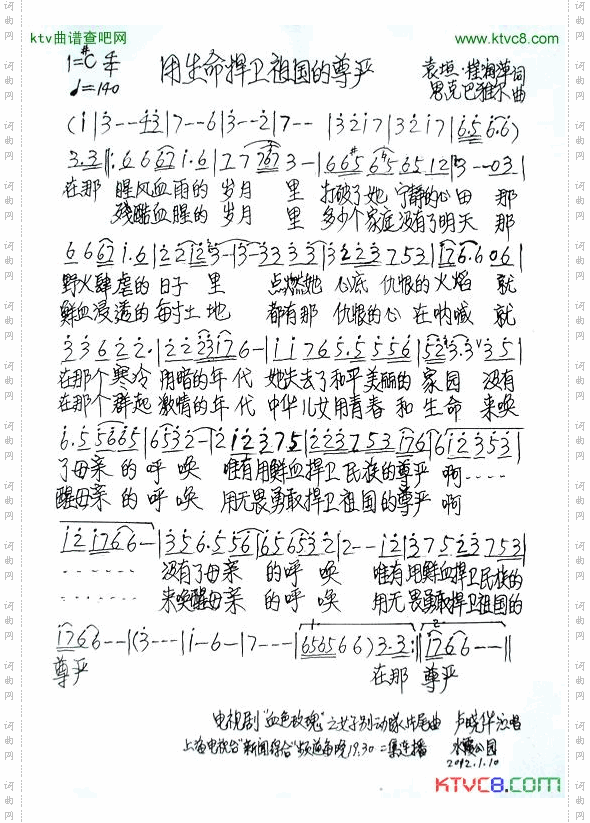 ktv曲谱查吧网
www.ktvc8.com
1=#C
♩=140
用生命捍卫祖国的尊严
袁垣·崔润萍词
思克巴雅尔曲
(i|3--43|7--6|3--2|7--|3217|3217|65 66)
3.3‖:6 6 67 1.6|7 7 767 3-|6 665 6 5 65 12|3--03|
在那 腥风血雨的 岁月 里 打破了她 宁静的心田 那
残酷血腥的 岁月 里 多少个家庭没有了明天 那
6 6 67 1.6|2 2 12 3-|3-33 33|3 2 2 3 7 5 3|176.606|
野火肆虐的 日子 里 点燃她 心底 仇恨的火焰 就
鲜血浸透的 每寸土 地 都有那 仇恨的心 在呐喊 就
3 3 6 2 2.|2 2 23 17 6-|1 1 7 6 5.5 5 5 6|52 3.3 35|
在那个寒冷 用暗的年代 她失去了和平美丽的 家园 没有
在那个群起 激情的年代 中华儿女用青春 和 生命 来唤
6.5 5665|6532 2-|2 12 3 75|2 2 3 7 5 3 176|612353|
了母亲 的 呼 唤 唯有用鲜血捍卫民族的尊严 啊····
醒母亲 的 呼 唤 用无畏勇敢捍卫祖国的尊严 啊
12 1766-|356.5 56|65 65 32|2--12|3 75 23 753|
······ 没有了母亲 的呼 唤 唯有用鲜血捍卫民族的
······ 来唤醒母亲 的呼 唤 用无畏勇敢捍卫祖国的
1766--|(3---|1-6-|7---|6565 66)3.3:‖1766--‖
尊严 在那 尊严
电视剧"血色玫瑰"之女子别动队片尾曲 卢晓华注唱
上海电视台"新闻综合"频道每晚19.30二集连播 水霞公园
2012.1.10
KTVC8.com
词曲网